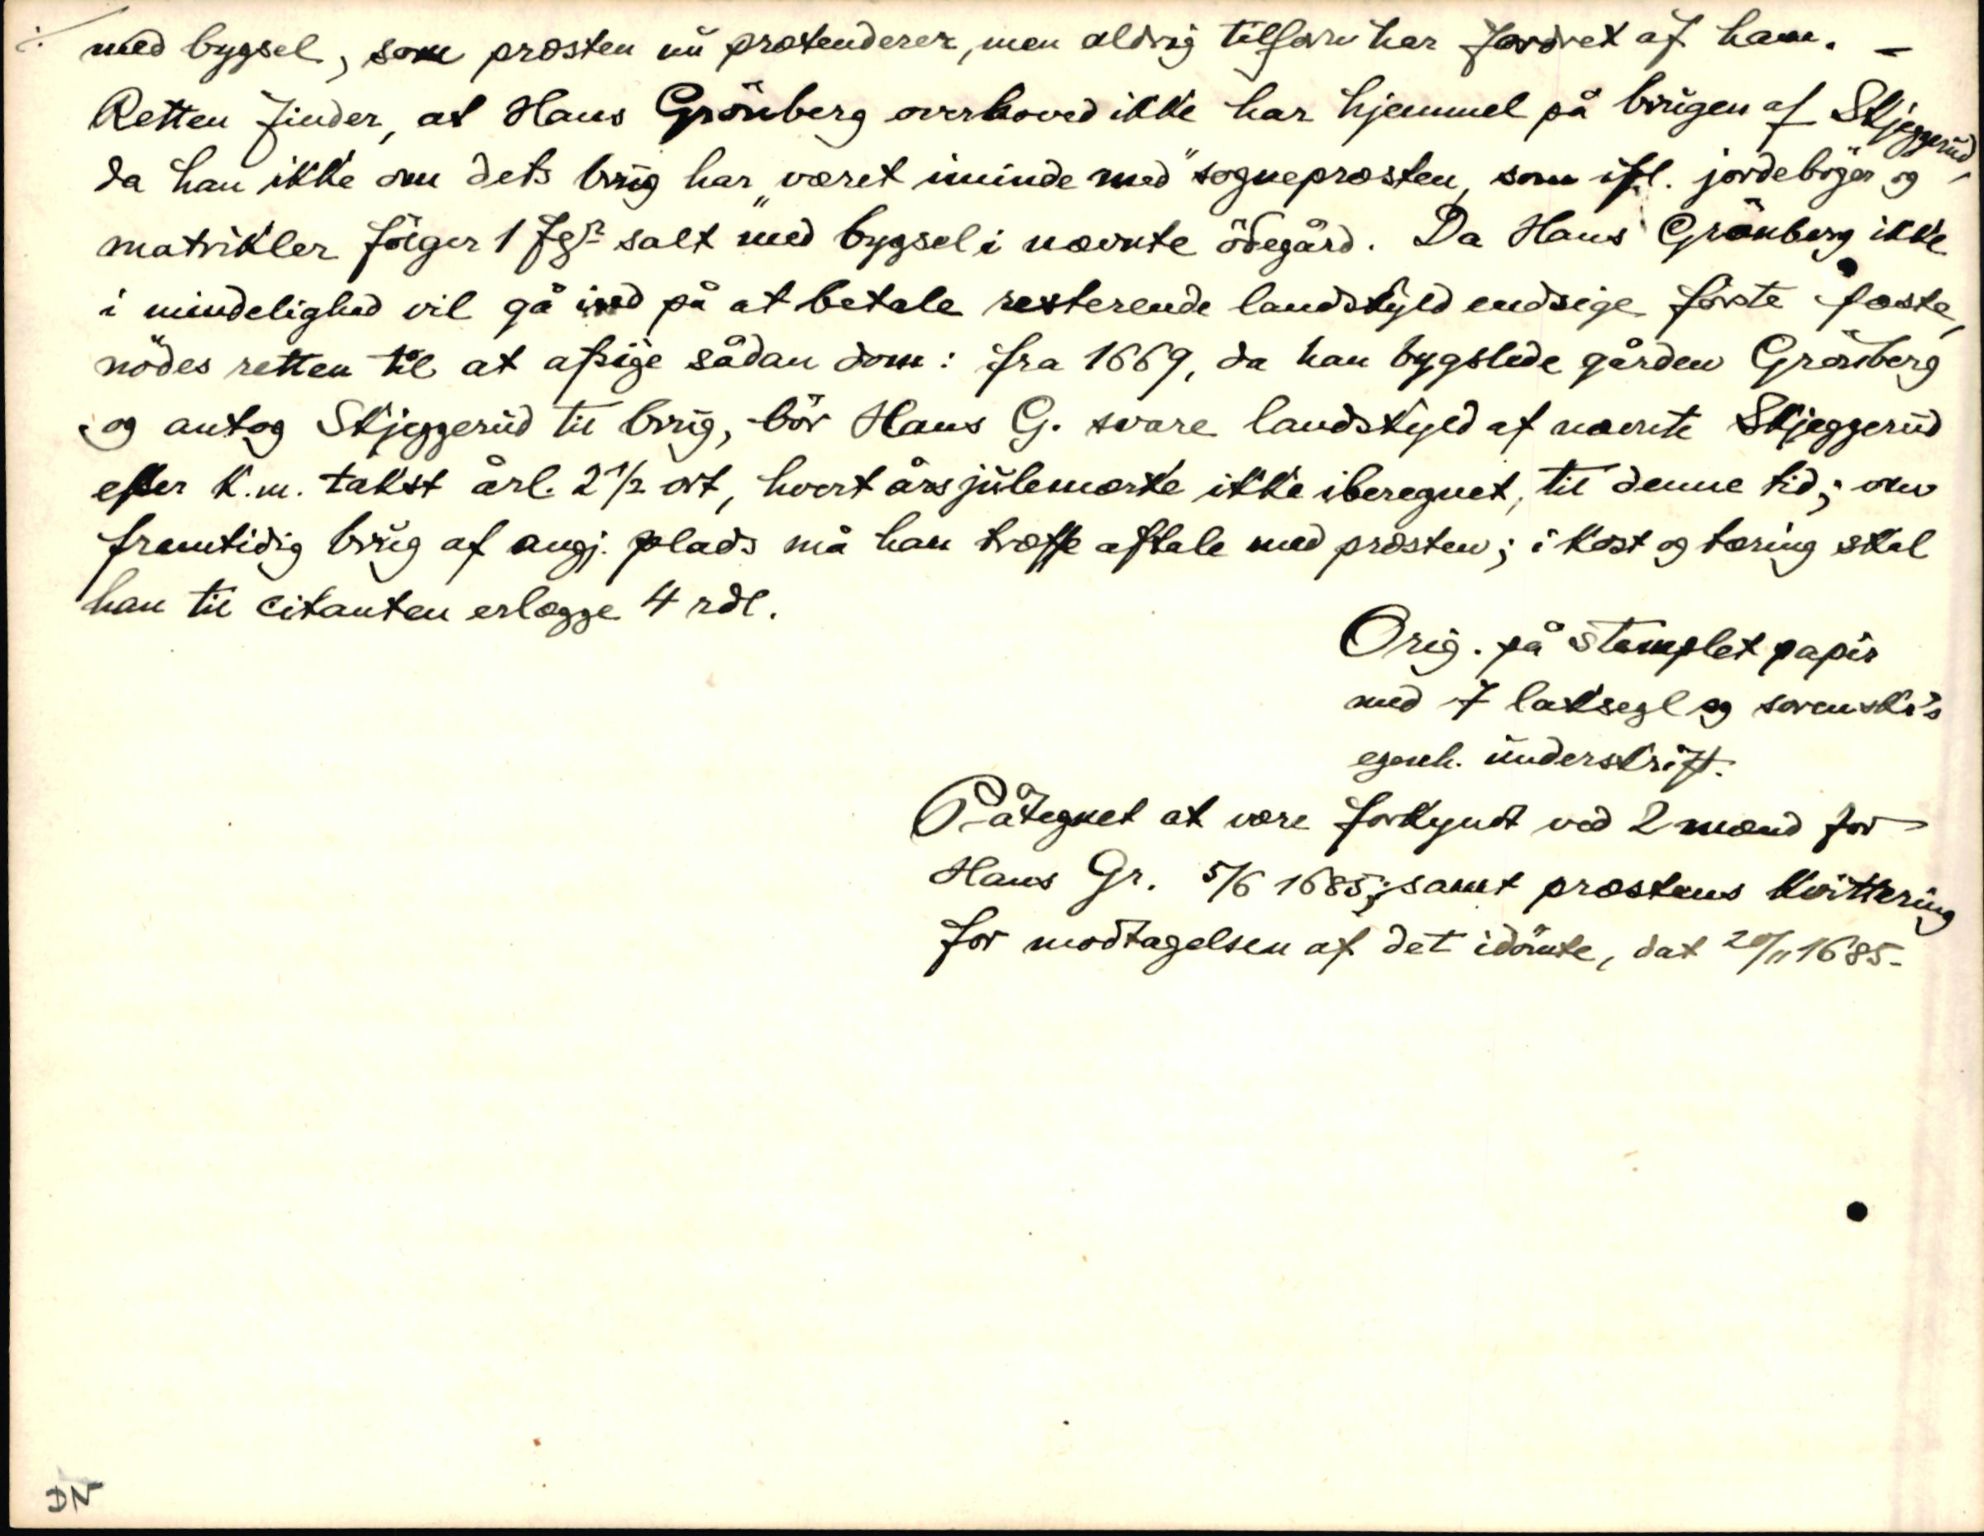 med bygsel, som præsten nu prætenderer, men aldrig tilforn har fordret af ham. –
Retten finder, at Hans Grönberg overhoved ikke har hjemmel på brugen af Skjeggerud,
da han ikke om dets brug har „været iminde med" sognepræsten, som ifl. jordebøger og
matrikler følger 1 fgr salt med bygsel i nævnte ödegård. Da Hans Grönberg ikke
i mindelighed vil gå ind på at betale resterende landskyld endsige første fæste,
nödes retten til at afsige sådan dom: fra 1669, da han bygslede gården Grönberg
og antog Skjeggerud til brug, bör Hans G. svare landskyld af nævnte Skjeggerud
efter k.m. takst årl. 2 1/2 ort, hvert års julemærke ikke iberegnet, til denne tid; om
fremtidig brug af angj. plads må han træffe aftale med præsten; i kost og tæring skal
han til citanten erlægge 4 rdl.
Orig. på stemplet papir
med 7 laksegl og sorenskr's
egenh. underskrift.
Påtegnet at være forkyndt ved 2 mænd for
Hans Gr. 5/6 1685; samt præstens kvittering
for modtagelsen af det idömte, dat 20/11 1685.
DN